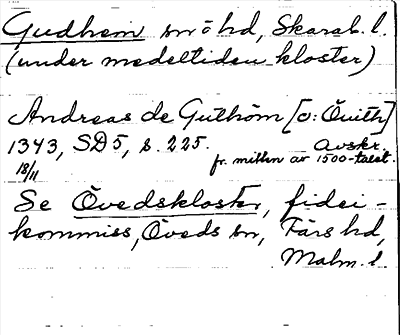 Gudhem sn o hd, Skarab. l.
(under medeltiden kloster)
Andreas de Guthöm [o: Öuith]
1343, SD 5, s. 225. Avskr.
18/11 fr. mitten av 1500-talet.
Se Övedskloster, fidei-
kommiss, Öveds sn, Färs hd,
Malm. l.